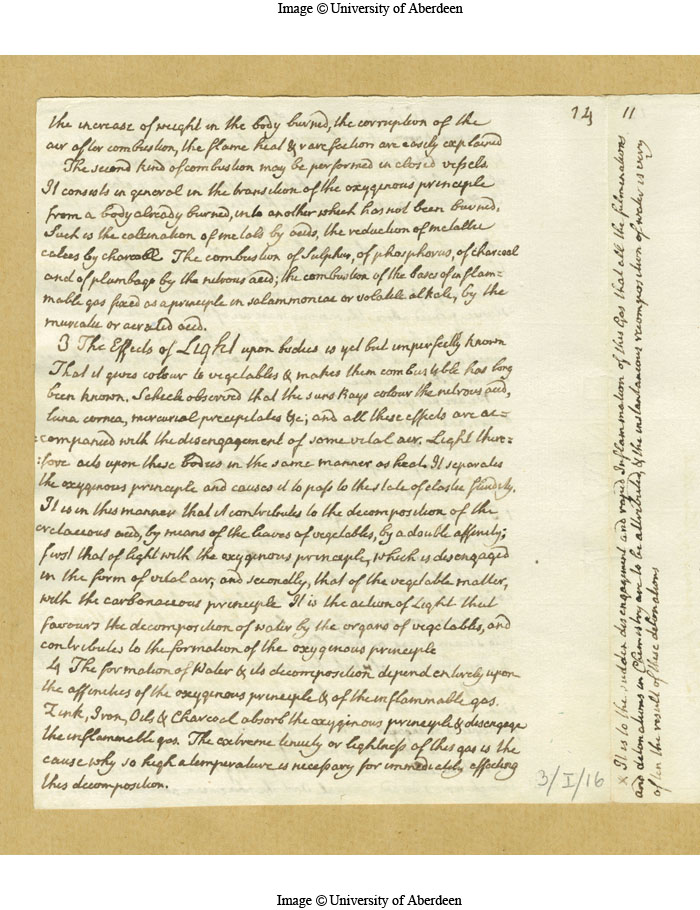 Image © University of Aberdeen
14
11
the increase of weight in the body burned, the corruption of the
air after combustion, the flame heat & rarefaction are easily explained
The second kind of combustion may be performed in closed vessels.
It consists in general in the transition of the oxyginous principle
from a body already burned, into another which has not been burned.
Such is the calcination of metals by acids, the reduction of metallic
calces by charcoal The combustion of Sulphur, of phosphorus, of charcoal
and of plumbago by the nitrous acid; the combustion of the bases of inflam=
mable gas fixed as a principle in salammoniac or volatile alkali, by the
muriatic or aerated acid.
3 The Effects of Light upon bodies is yet but imperfectly known
That it gives colour to vegetables & makes them combustible has long
been known. Scheele observed that the suns Rays colour the nitrous acid,
luna cornea, mercurial precipitates &c; and all these effects are ac=
=companied with the disengagement of some vital air. Light there=
=fore acts upon these bodies in the same manner as heat. It separates
the oxyginous principle and causes it to pass to the state of elastic fluidity.
It is in this manner that it contributes to the decomposition of the
cretaceous acid, by means of the leaves of vegetables, by a double affinity;
first that of light with the oxyginous principle, which is disengaged
in the form of vital air; and secondly, that of the vegetable matter,
with the carbonaceous principle It is the action of Light that
favours the decomposition of water by the organs of vegetables, and
contributes to the formation of the oxyginous principle
4 The formation of Water & its decomposition depend entirely upon
the affinities of the oxyginous principle & of the inflammable gas.
Zink, Iron, Oils & Charcoal absorb the oxyginous principle & disengage
the inflammable gas. The extreme tenuity or lightness of this gas is the
cause why so high a temperature is necessary for immediately effecting
this decomposition.
3/I/16
x It is to the sudden disengagement and rapid Inflammation of this Gas that all the fulminations
and detonations in Chemistry are to be attributed, & the instantaneous recomposition of water is very
often the result of these detonations
Image © University of Aberdeen